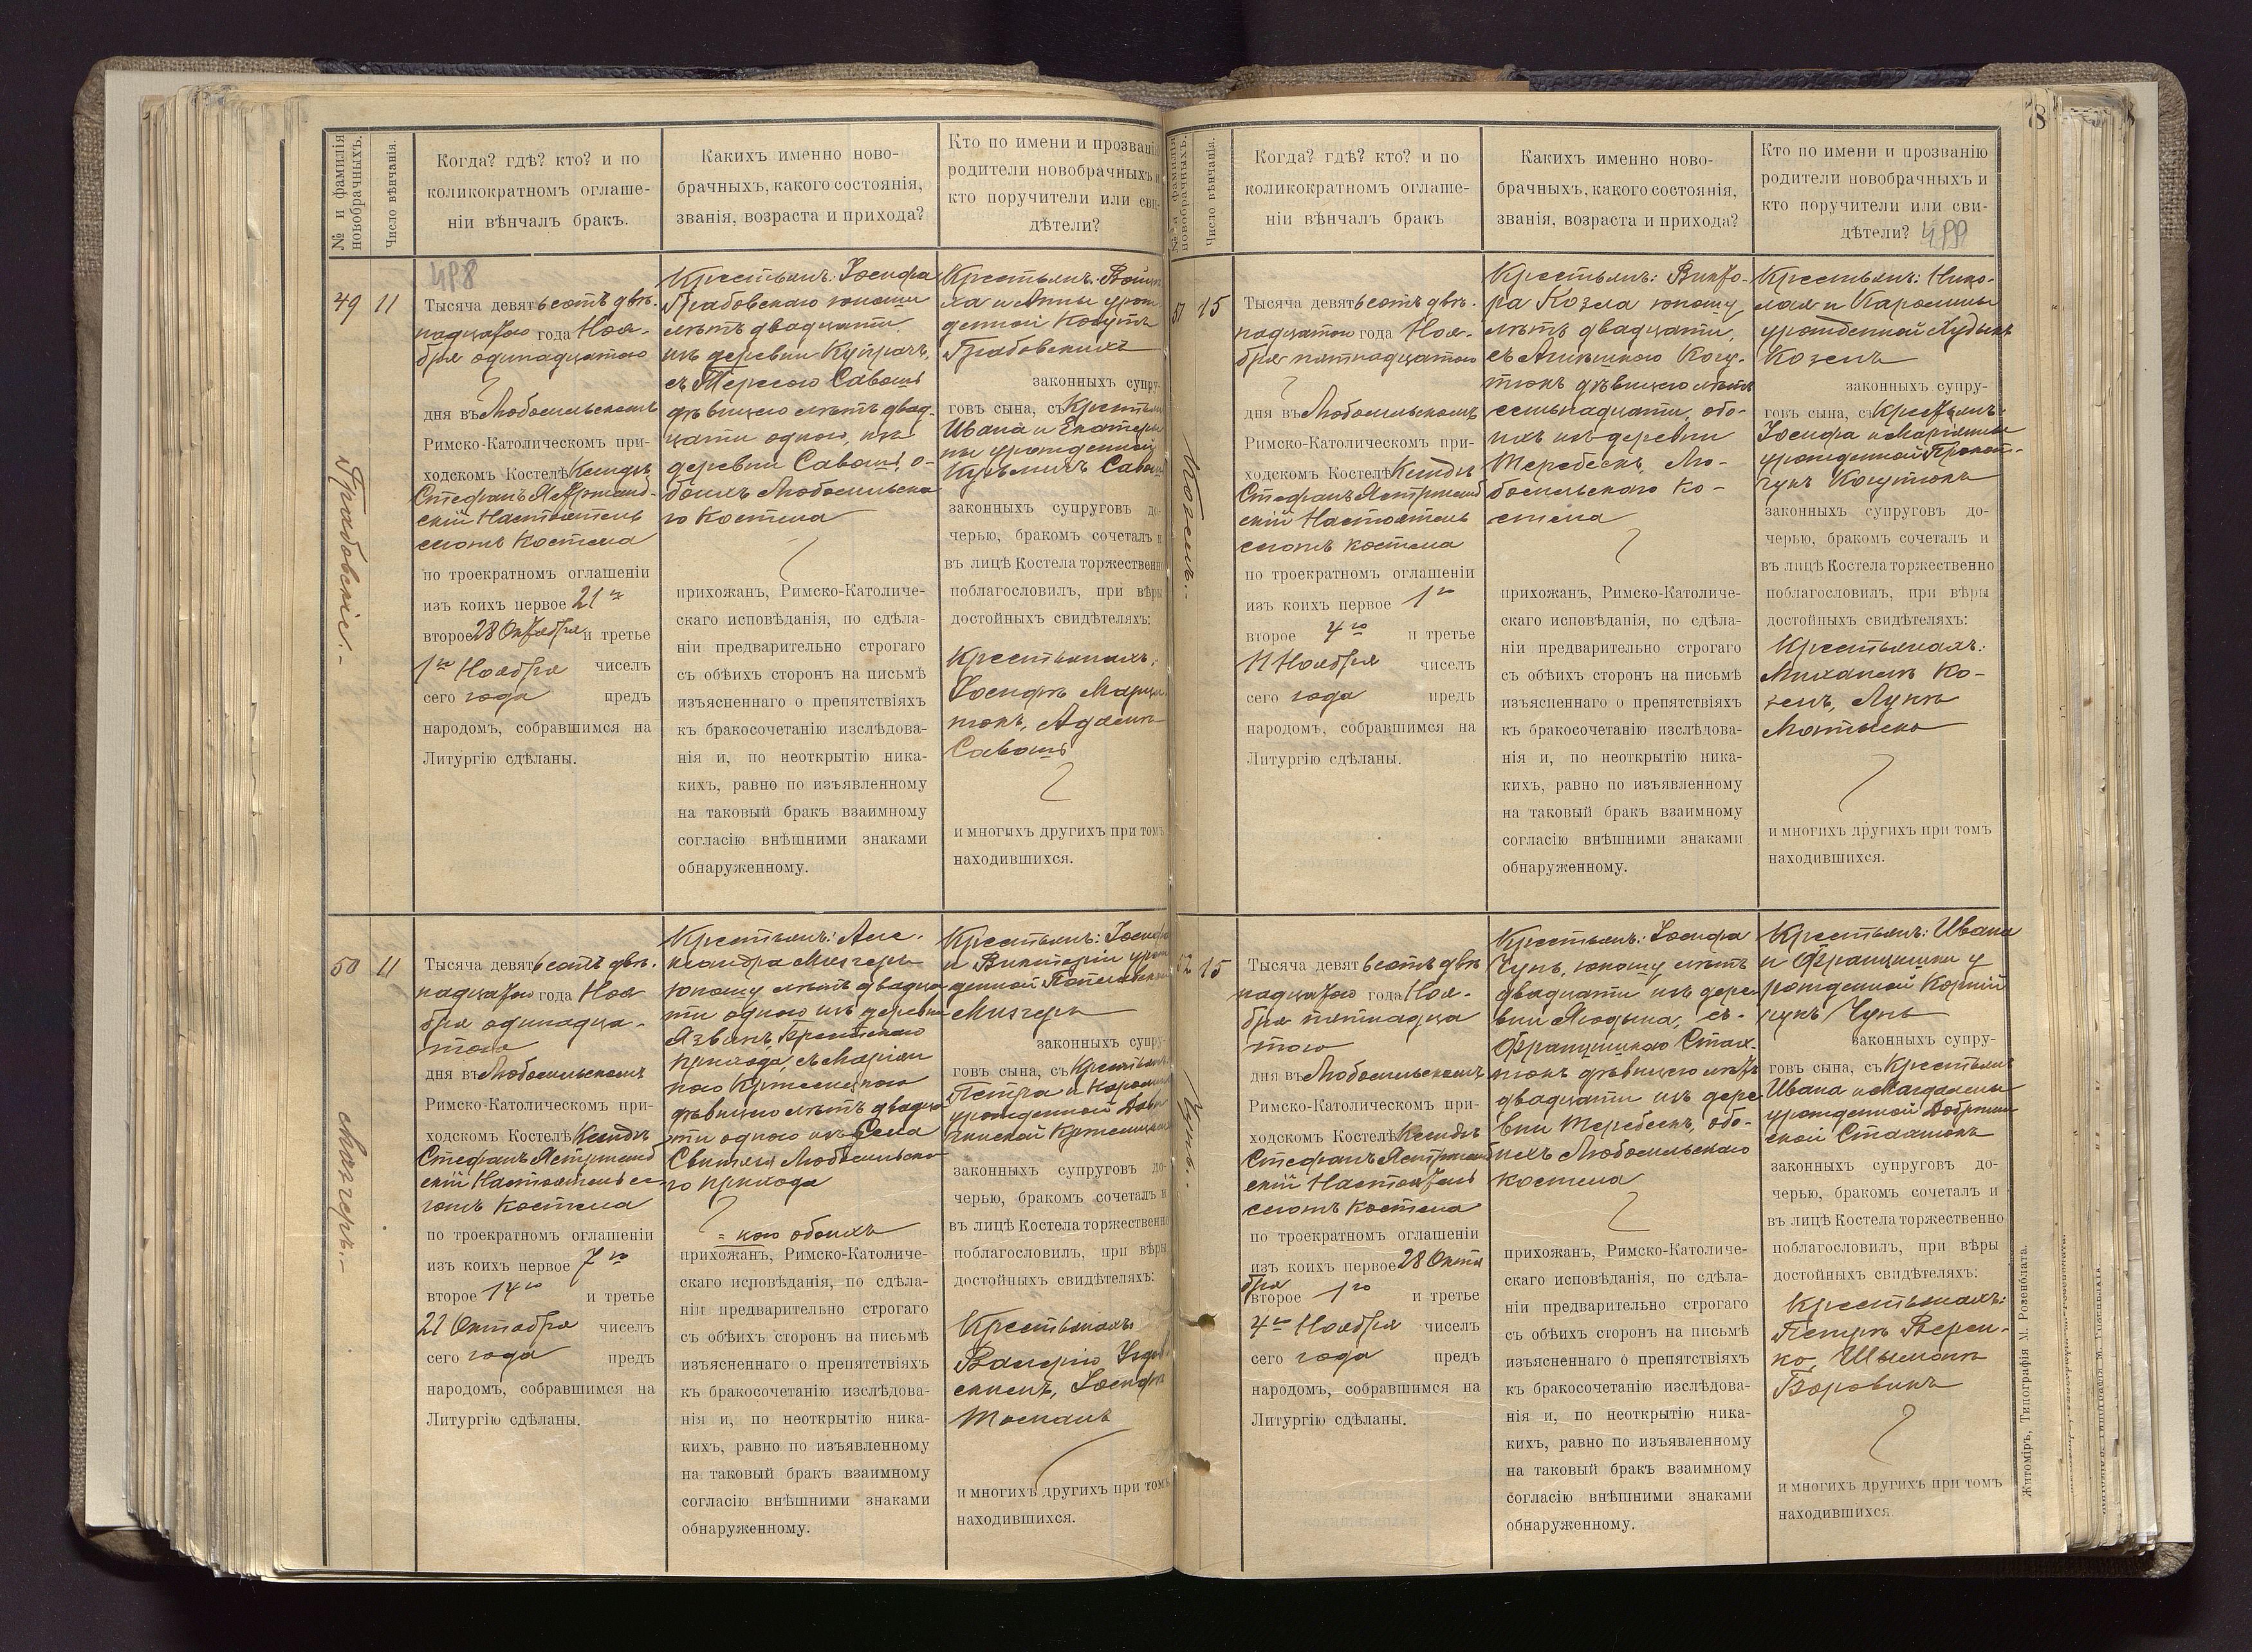 № и фамилія новобрачныхъ.
Число вѣнчанія.
Когда? гдѣ? кто? и по
коликократномъ оглаше-
ніи вѣнчалъ бракъ.
Каких­ъ именно ново-
брачныхъ, какого состоянія,
званія, возраста и прихода?
Кто по имени и прозванію
родители новобрачныхъ и
кто поручители или сви-
дѣтели?
49
11
Грабовскіе.-
498
Тысяча девятьсотъ двѣ-
надцатаго года Ноя-
бря одинадцатаго
дня въ Любомльскомъ
Римско-Католическомъ при-
ходскомъ Костелѣ Ксендзъ
Стефанъ Ястржемб-
скій Настоятель
сего костела
по троекратномъ оглашеніи
изъ коихъ первое 21го
второе 28 Октября и третье
1го Ноября чиселъ
сего года предъ
народомъ, собравшимся на
Литургію сдѣланы.
Крестьянъ: Іосифа
Грабовскаго юношу
лѣтъ двадцати
изъ деревни
съ Терезою Савошъ
дѣвицею лѣтъ двад-
цати одного, изъ
деревни о-
боихъ Любомльска-
го костела
прихожанъ, Римско-Католиче-
скаго исповѣданія, по сдѣла-
ніи предварительно строгаго
съ обѣихъ сторонъ на письмѣ
изъясненнаго о препятствіяхъ
къ бракосочетанію изслѣдова-
нія и, по неоткрытію ника-
кихъ, равно по изъявленному
на таковый бракъ взаимному
согласію внѣшними знаками
обнаруженному.
Крестьянъ: Войцѣ-
ха и Анны урож-
денной
Грабовскихъ
законныхъ супру-
говъ сына, съ Крестьянъ
Ивана и Екатери-
ны урожденной
Кузьмичъ Савошъ
законныхъ супруговъ до-
черью, бракомъ сочеталъ и
въ лицѣ Костела торжественно
поблагословилъ, при вѣры
достойныхъ свидѣтеляхъ:
Крестьянахъ:
Іосифѣ
Адамѣ
Савошъ
и многихъ другихъ при томъ
находившихся.
50
11
Тысяча девятьсотъ двѣ-
надцатаго года Ноя
бря одинадца-
таго
дня въ Любомльскомъ
Римско-Католическомъ при-
ходскомъ Костелѣ Ксендзъ
Стефанъ Ястржемб
скій Настоятель се-
го костела
по троекратномъ оглашеніи
изъ коихъ первое 7го
второе 14го и третье
21 Октября чиселъ
сего года предъ
народомъ, собравшимся на
Литургію сдѣланы.
Крестьянъ: Але-
ксандра
юношу лѣтъ двадца
ти одного изъ деревни
прихода, съ Маріан
ною
дѣвицею лѣтъ двадца-
ти одного изъ Села
Любомльска-
го прихода
= кого обоихъ
прихожанъ, Римско-Католиче-
скаго исповѣданія, по сдѣла-
ніи предварительно строгаго
съ обѣихъ сторонъ на письмѣ
изъясненнаго о препятствіяхъ
къ бракосочетанію изслѣдова-
нія и, по неоткрытію ника-
кихъ, равно по изъявленному
на таковый бракъ взаимному
согласію внѣшними знаками
обнаруженному.
Крестьянъ: Іосифа
и Викторіи урож
денной
законныхъ супру-
говъ сына, съ Крестьянъ
Петра и
урожденной
законныхъ супруговъ до-
черью, бракомъ сочеталъ и
въ лицѣ Костела торжественно
поблагословилъ, при вѣры
достойныхъ свидѣтеляхъ:
Крестьянахъ
Іосифѣ
и многихъ другихъ при томъ
находившихся.
№ и фамилія новобрачныхъ.
Число вѣнчанія.
Когда? гдѣ? кто? и по
коликократномъ оглаше-
ніи вѣнчалъ бракъ
Каких­ъ именно ново-
брачныхъ, какого состоянія,
званія, возраста и прихода?
Кто по имени и прозванію
родители новобрачныхъ и
кто поручители или сви-
дѣтели? 499
51
15
Козелъ.
Тысяча девятьсотъ двѣ-
надцатаго года Ноя-
бря пятнадцатаго
дня въ Любомльскомъ
Римско-Католическомъ при-
ходскомъ Костелѣ Ксендзъ
Стефанъ Ястржемб
скій Настоятель
сего костела
по троекратномъ оглашеніи
изъ коихъ первое 1го
второе 4го и третье
11 Ноября чиселъ
сего года предъ
народомъ, собравшимся на
Литургію сдѣланы.
Крестьянъ: Викто-
ра Козела юношу
лѣтъ двадцати,
съ
дѣвицею лѣтъ
семьнадцати, обо-
ихъ изъ деревни
Теребеекъ, Лю-
бомльскаго ко-
стела
прихожанъ, Римско-Католиче-
скаго исповѣданія, по сдѣла-
ніи предварительно строгаго
съ обѣихъ сторонъ на письмѣ
изъясненнаго о препятствіяхъ
къ бракосочетанію изслѣдова-
нія и, по неоткрытію ника-
кихъ, равно по изъявленному
на таковый бракъ взаимному
согласію внѣшними знаками
обнаруженному.
Крестьянъ: Нико-
лая и Каролины
урожденной
Козелъ
законныхъ супру-
говъ сына, съ Крестьянъ:
Іосифа и Маріанны
урожденной
законныхъ супруговъ до-
черью, бракомъ сочеталъ и
въ лицѣ Костела торжественно
поблагословилъ, при вѣры
достойныхъ свидѣтеляхъ:
Крестьянахъ:
Михаилѣ Ко-
зелъ, Лукѣ
и многихъ другихъ при томъ
находившихся.
52
15
Чунь.
Тысяча девятьсотъ двѣ
надцатаго года Ноя-
бря пятнадца
таго
дня въ Любомльскомъ
Римско-Католическомъ при-
ходскомъ Костелѣ Ксендзъ
Стефанъ Ястржемб
скій Настоятель
сего костела
по троекратномъ оглашеніи
изъ коихъ первое 28 Октя
бря
второе 1го и третье
4го Ноября чиселъ
сего года предъ
народомъ, собравшимся на
Литургію сдѣланы.
Крестьянъ: Іосифа
Чунь, юношу лѣтъ
двадцати изъ дере-
вни съ
Францишкою
дѣвицею лѣтъ
двадцати изъ дере
вни Теребеекъ, обо-
ихъ Любомльскаго
костела
прихожанъ, Римско-Католиче-
скаго исповѣданія, по сдѣла-
ніи предварительно строгаго
съ обѣихъ сторонъ на письмѣ
изъясненнаго о препятствіяхъ
къ бракосочетанію изслѣдова-
нія и, по неоткрытію ника-
кихъ, равно по изъявленному
на таковый бракъ взаимному
согласію внѣшними знаками
обнаруженному.
Крестьянъ: Ивана
и Францишки у
рожденной Корній
чукъ Чунь
законныхъ супру-
говъ сына, съ Крестьянъ
Ивана и Магдалены
урожденной
законныхъ супруговъ до-
черью, бракомъ сочеталъ и
въ лицѣ Костела торжественно
поблагословилъ, при вѣры
достойныхъ свидѣтеляхъ:
Крестьянахъ:
Петрѣ Верем-
ко, Шымонѣ
Боровикъ
и многихъ другихъ при томъ
находившихся
Житоміръ, Типографія М. Розенблата.